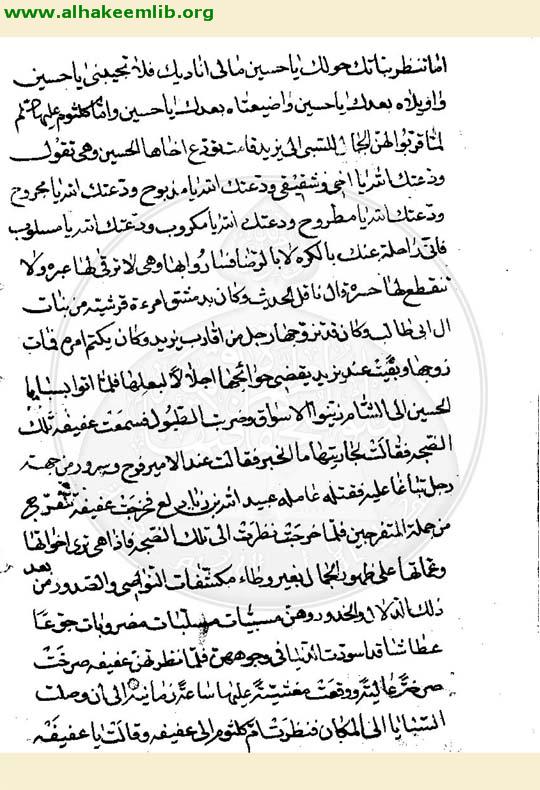 www.alhakeemlib.org
اما تنظر بناتك حولك يا حسين مالى اناديك فلا تجيبنى يا حسين
واويلاه بعدك يا حسين واضيعتاه بعدك يا حسين واما كلثوم
لما قربوا لهن الجمال للسبى الى يزيد قامت تودع اخاها الحسين وهى تقول
ودعتك الله يا اخى وشقيقى ودعتك الله يا مذبوح ودعتك الله يا مجروح
ودعتك الله يا مطروح ودعتك الله يا مكروب ودعتك الله يا مسلوب
فانى راحلة عنك بالكره لا بالرضا فساروا بها وهى لا ترقى لها عبره ولا
تنقطع لها حسره قال ناقل الحديث وكان بدمشق امرءة قرشيه من بنات
ال ابى طالب وكان قد تزوجها رجل من اقارب يزيد وكان يكتم امره فمات
زوجها وبقيت عند يزيد يقضى حوائجها اجلالا لبعلها فلما اتوا بسبايا
الحسين الى الشام زينوا الاسواق وضربت الطبول فسمعت عفيفه تلك
الضجه فقالت لجاريتها ما الخبر فقالت عند الامير فرح وسرور من جهة
رجل بغا عليه فقتله عامله عبيد الله بن زياد فخرجت عفيفة تتفرج
من جملة المتفرجين فلما خرجت نظرت الى تلك الضجه فاذا هى ترى اخواتها
وعماتها على ظهور الجمال بغير وطاء مكشفات النواصى والصدور من بعد
ذلك الدلال والخدور وهن مسبيات مسلبات مضروبات جوعا
عطاشا قد اسودت الدنيا فى وجوههن فلما نظرتهن عفيفه صرخت
صرخة عالية ووقعت مغشية عليها ساعة زمانية الى ان وصلت
السبايا الى المكان فنظرت ام كلثوم الى عفيفه وقالت يا عفيفه